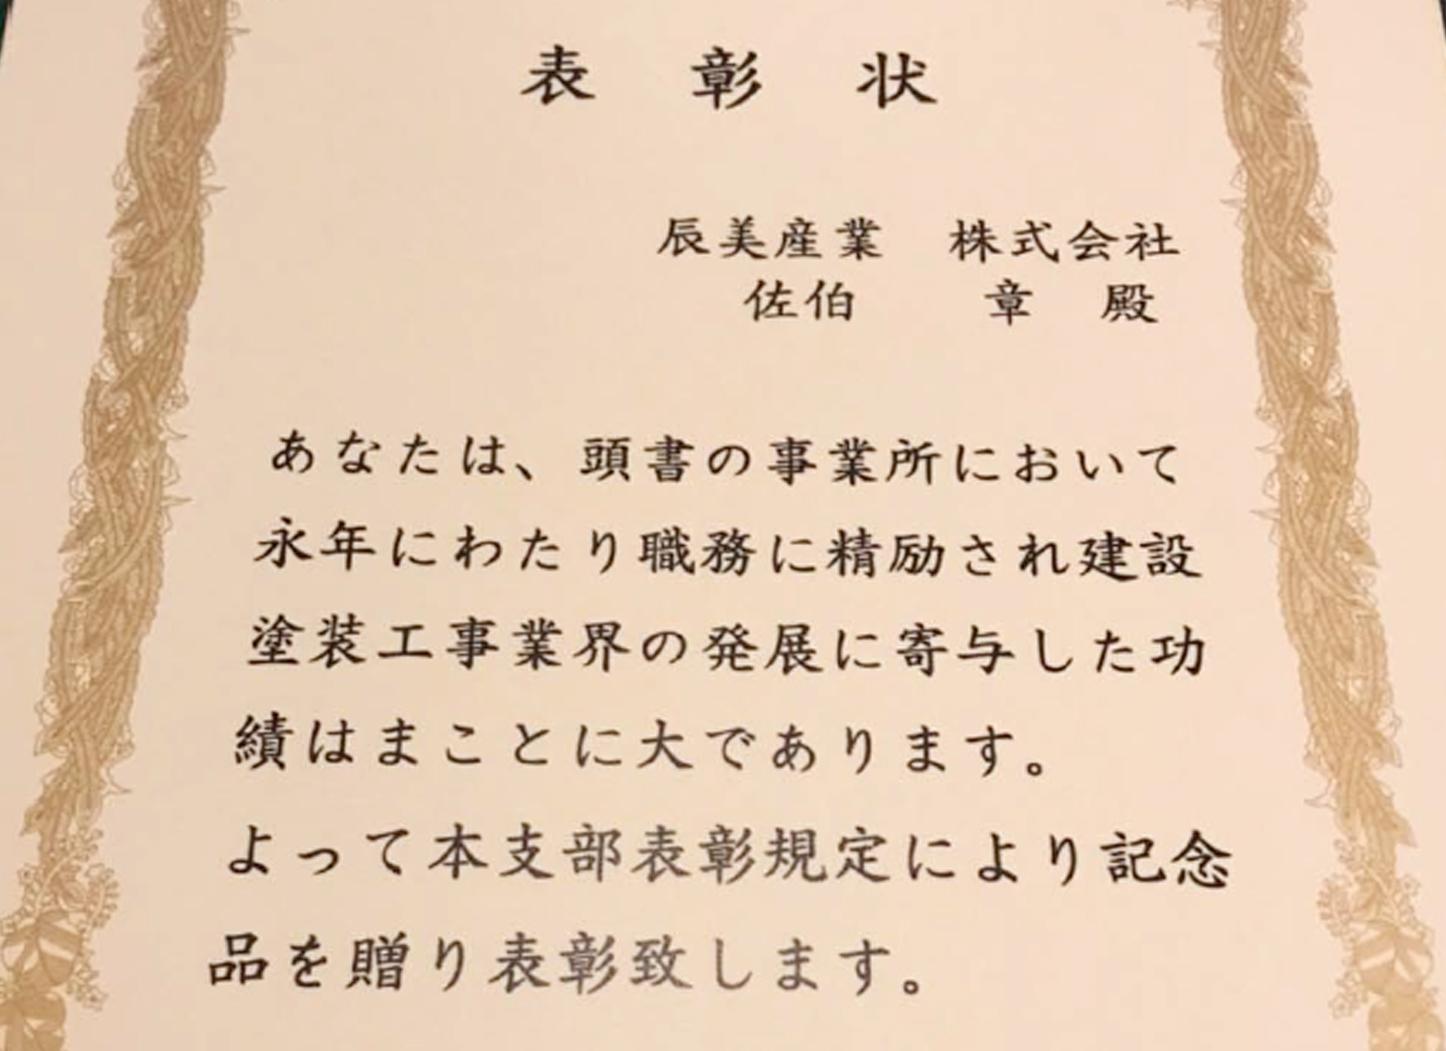 表 彰 状
辰美産業 株式会社
佐伯 章 殿
あなたは、頭書の事業所において
永年にわたり職務に精励され建設
塗装工事業界の発展に寄与した功
績はまことに大であります。
よって本支部表彰規定により記念
品を贈り表彰致します。